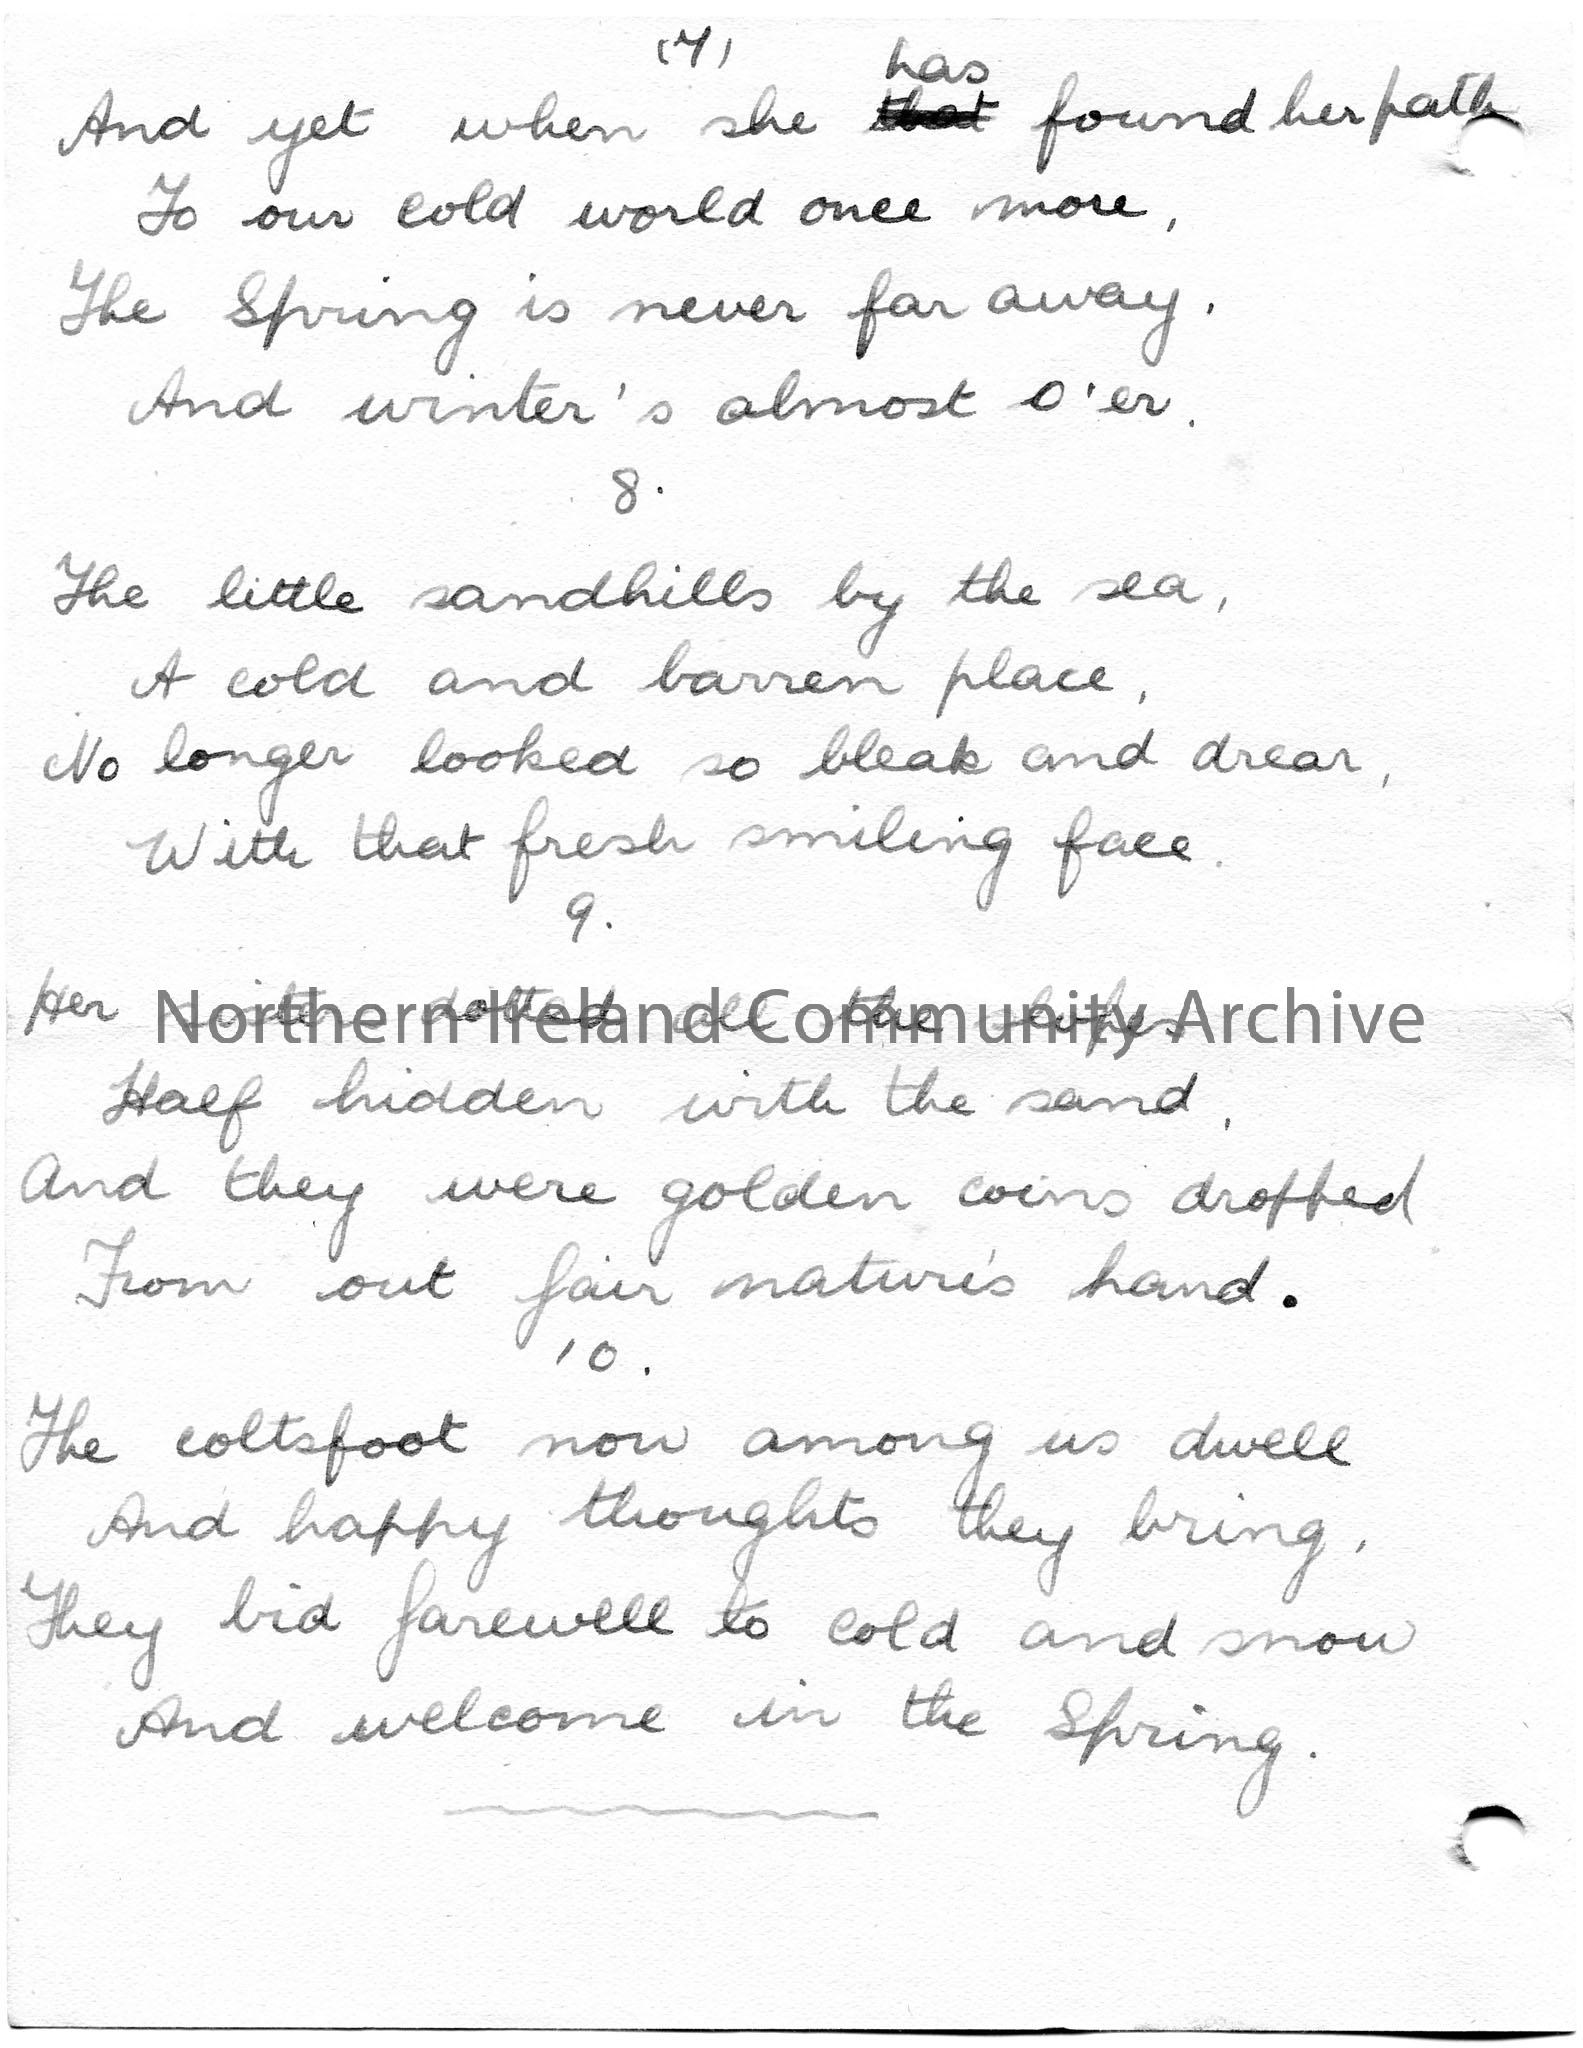 (7)
has
And yet when she that found her path
To our cold world once more,
The Spring is never far away.
And winter's almost o'er.
8.
The little sandhills by the sea,
A cold and barren place,
No longer looked so bleak and drear,
With that fresh smiling face.
9.
Her sisters dotted all the slopes
Northern Ireland Community Archive
Half hidden with the sand,
And they were golden coins dropped
From out fair nature's hand.
10.
The coltsfoot now among us dwell
And happy thoughts they bring,
They bid farewell to cold and snow
And welcome in the Spring.